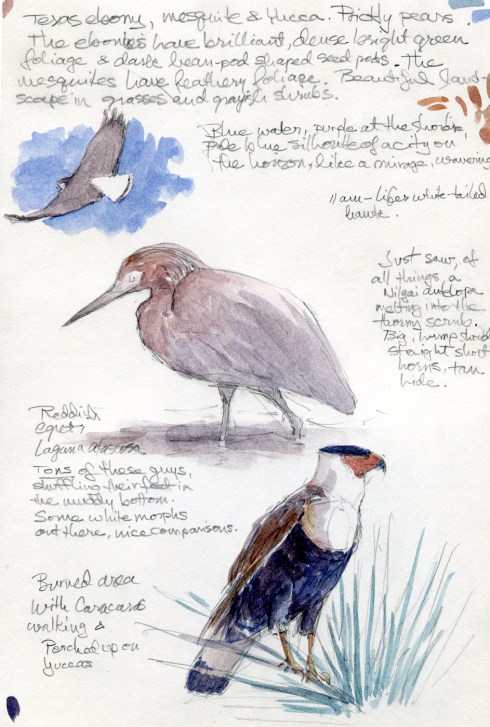 Texas ebony, mesquite & Yucca. Prickly pears.
The ebonies have brilliant, dense bright green
foliage & dark bean-pod shaped seed pods. The
mesquites have feathery foliage. Beautiful land-
scape in grasses and grayish shrubs.
Blue water, purple at the shoreline,
pale blue silhouette of a city on
the horizon, like a mirage, wavering
11am - lifer white-tailed
hawk.
Just saw, of
all things, a
Nilgai antelope
melting into the
thorny scrub.
Big, hump should
straight short
horns, tan
hide.
Reddish
egret
Laguna Atascosa
Tons of these guys,
shuffling their feet in
the muddy bottom.
Some white morphs
out there, nice comparisons.
Burned area
with Caracaras
walking &
Perched up on
yuccas